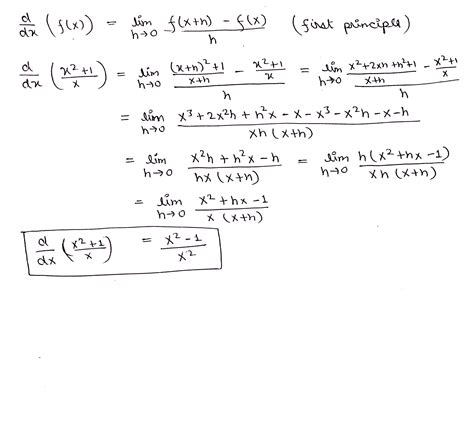 d/dx (f(x)) = lim h→0 f(x+h) - f(x) / h (first principle)
d/dx (x²+1 / x) = lim h→0 ((x+h)²+1 / x+h - x²+1 / x) / h = lim h→0 (x²+2xh+h²+1 / x+h - x²+1 / x) / h
= lim h→0 x³+2x²h+h²x-x-x³-x²h-x-h / xh(x+h)
= lim h→0 x²h+h²x-h / hx(x+h) = lim h→0 h(x²+hx-1) / xh(x+h)
= lim h→0 x²+hx-1 / x(x+h)
d/dx (x²+1 / x) = x²-1 / x²